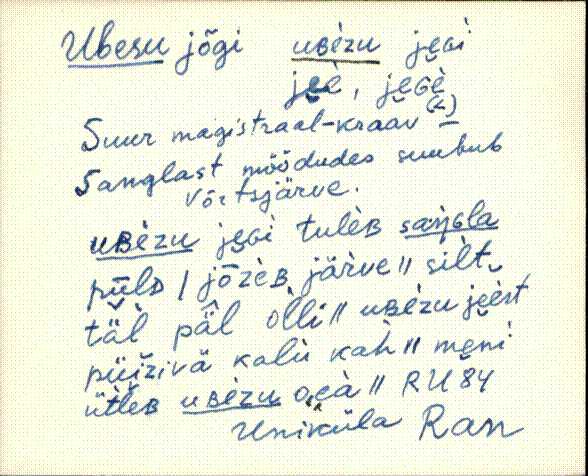 Ubesu jõgi uʙèzu je̮ɢi
je̮è, je̮ɢè
Suur magistraal-kraav (2) –
Sanglast möödudes suubub
Võrtsjärve.
uʙèzu je̮ɢi tulèʙ saŋɢla
pũlᴅ / jõzèʙ järve // silt
täl päl olli // uʙèzu je̮èst
püiživä kalu kah // me̮ni
ütleʙ uʙèzu oja // RU 84
Uniküla Ran